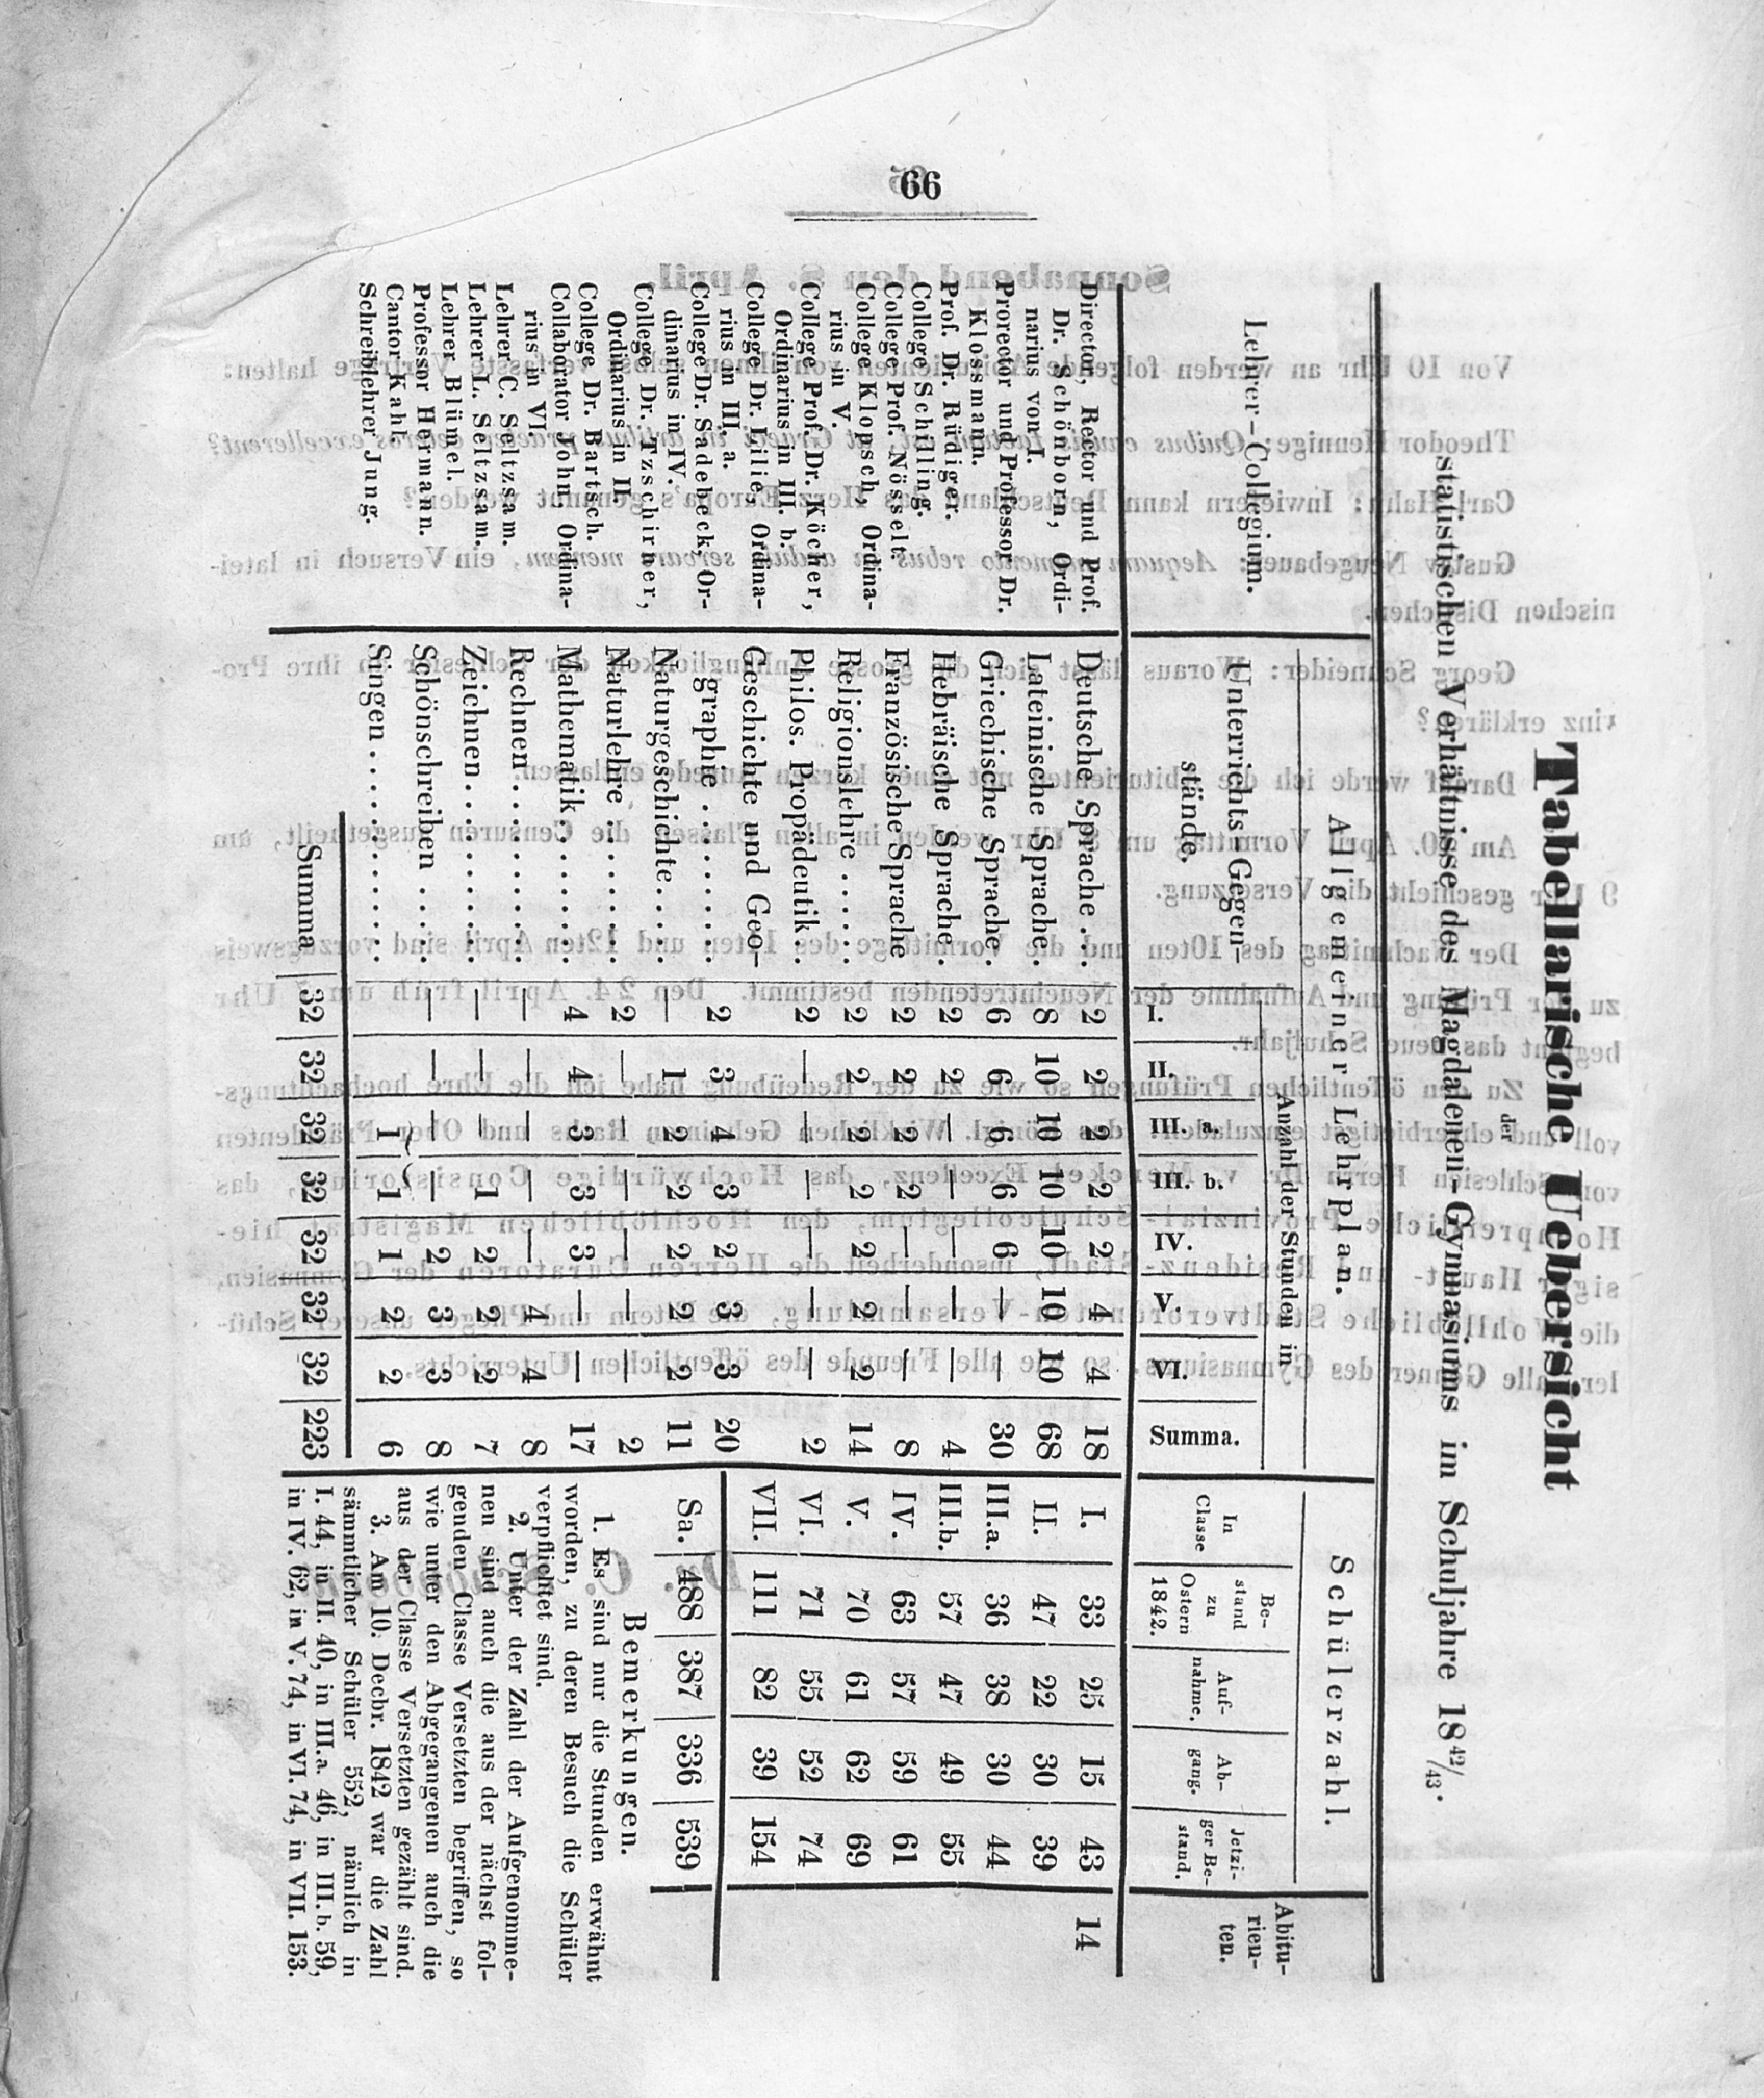 66
Tabellarische Uebersicht
der
statistischen Verhältnisse des Magdalenen-Gymnasiums im Schuljahre 18 42/43.
Lehrer-Collegium.
Director, Rector und Prof.
Dr. Schönborn, Ordi-
narius von I.
Prorector und Professor Dr.
Klossmann.
Prof. Dr. Rüdiger.
College Schilling.
College Prof. Nösselt.
College Klopsch, Ordina-
rius in V.
College Prof. Dr. Köcher,
Ordinarius in III. b.
College Dr. Lilie, Ordina-
rius in III. a.
College Dr. Sadebeck, Or-
dinarius in IV.
College Dr. Tzschirner,
Ordinarius in II.
College Dr. Bartsch.
Collaborator John, Ordina-
rius in VI.
Lehrer C. Seltzsam.
Lehrer L. Seltzsam.
Lehrer Blümel.
Professor Hermann.
Cantor Kahl.
Schreiblehrer Jung.
Allgemeiner Lehrplan.
Unterrichts-Gegen-
stände.
Anzahl der Stunden in
I. II. III. a. III. b. IV. V. VI. Summa.
Deutsche Sprache . . 2 2 2 2 2 4 4 18
Lateinische Sprache. . 8 10 10 10 10 10 10 68
Griechische Sprache. . 6 6 6 6 6 — — 30
Hebräische Sprache. . 2 2 — — — — — 4
Französische Sprache 2 2 2 2 — — — 8
Religionslehre . . . . . . 2 2 2 2 2 2 2 14
Philos. Propädeutik. . 2 — — — — — — 2
Geschichte und Geo-
graphie . . . . . . . . . 2 3 4 3 2 3 3 20
Naturgeschichte. . . . . — 1 2 2 2 2 2 11
Naturlehre . . . . . . . . 2 — — — — — — 2
Mathematik. . . . . . . . 4 4 3 3 3 — — 17
Rechnen. . . . . . . . . . — — — — — 4 4 8
Zeichnen. . . . . . . . . . — — — 1 2 2 2 7
Schönschreiben . . . . . — — — — 2 3 3 8
Singen . . . . . . . . . . . 1 1 1 2 2 6
Summa 32 32 32 32 32 32 32 223
Schülerzahl.
In
Classe
Be-
stand
zu
Ostern
1842.
Auf-
nahme.
Ab-
gang.
Jetzi-
ger Be-
stand.
Abitu-
rien-
ten.
I. 33 25 15 43 14
II. 47 22 30 39
III.a. 36 38 30 44
III.b. 57 47 49 55
IV. 63 57 59 61
V. 70 61 62 69
VI. 71 55 52 74
VII. 111 82 39 154
Sa. 488 387 336 539
Bemerkungen.
1. Es sind nur die Stunden erwähnt
worden, zu deren Besuch die Schüler
verpflichtet sind.
2. Unter der Zahl der Aufgenomme-
nen sind auch die aus der nächst fol-
genden Classe Versetzten begriffen, so
wie unter den Abgegangenen auch die
aus der Classe Versetzten gezählt sind.
3. Am 10. Decbr. 1842 war die Zahl
sämmtlicher Schüler 552, nämlich in
I. 44, in II. 40, in III.a. 46, in III. b. 59,
in IV. 62, in V. 74, in VI. 74, in VII. 153.